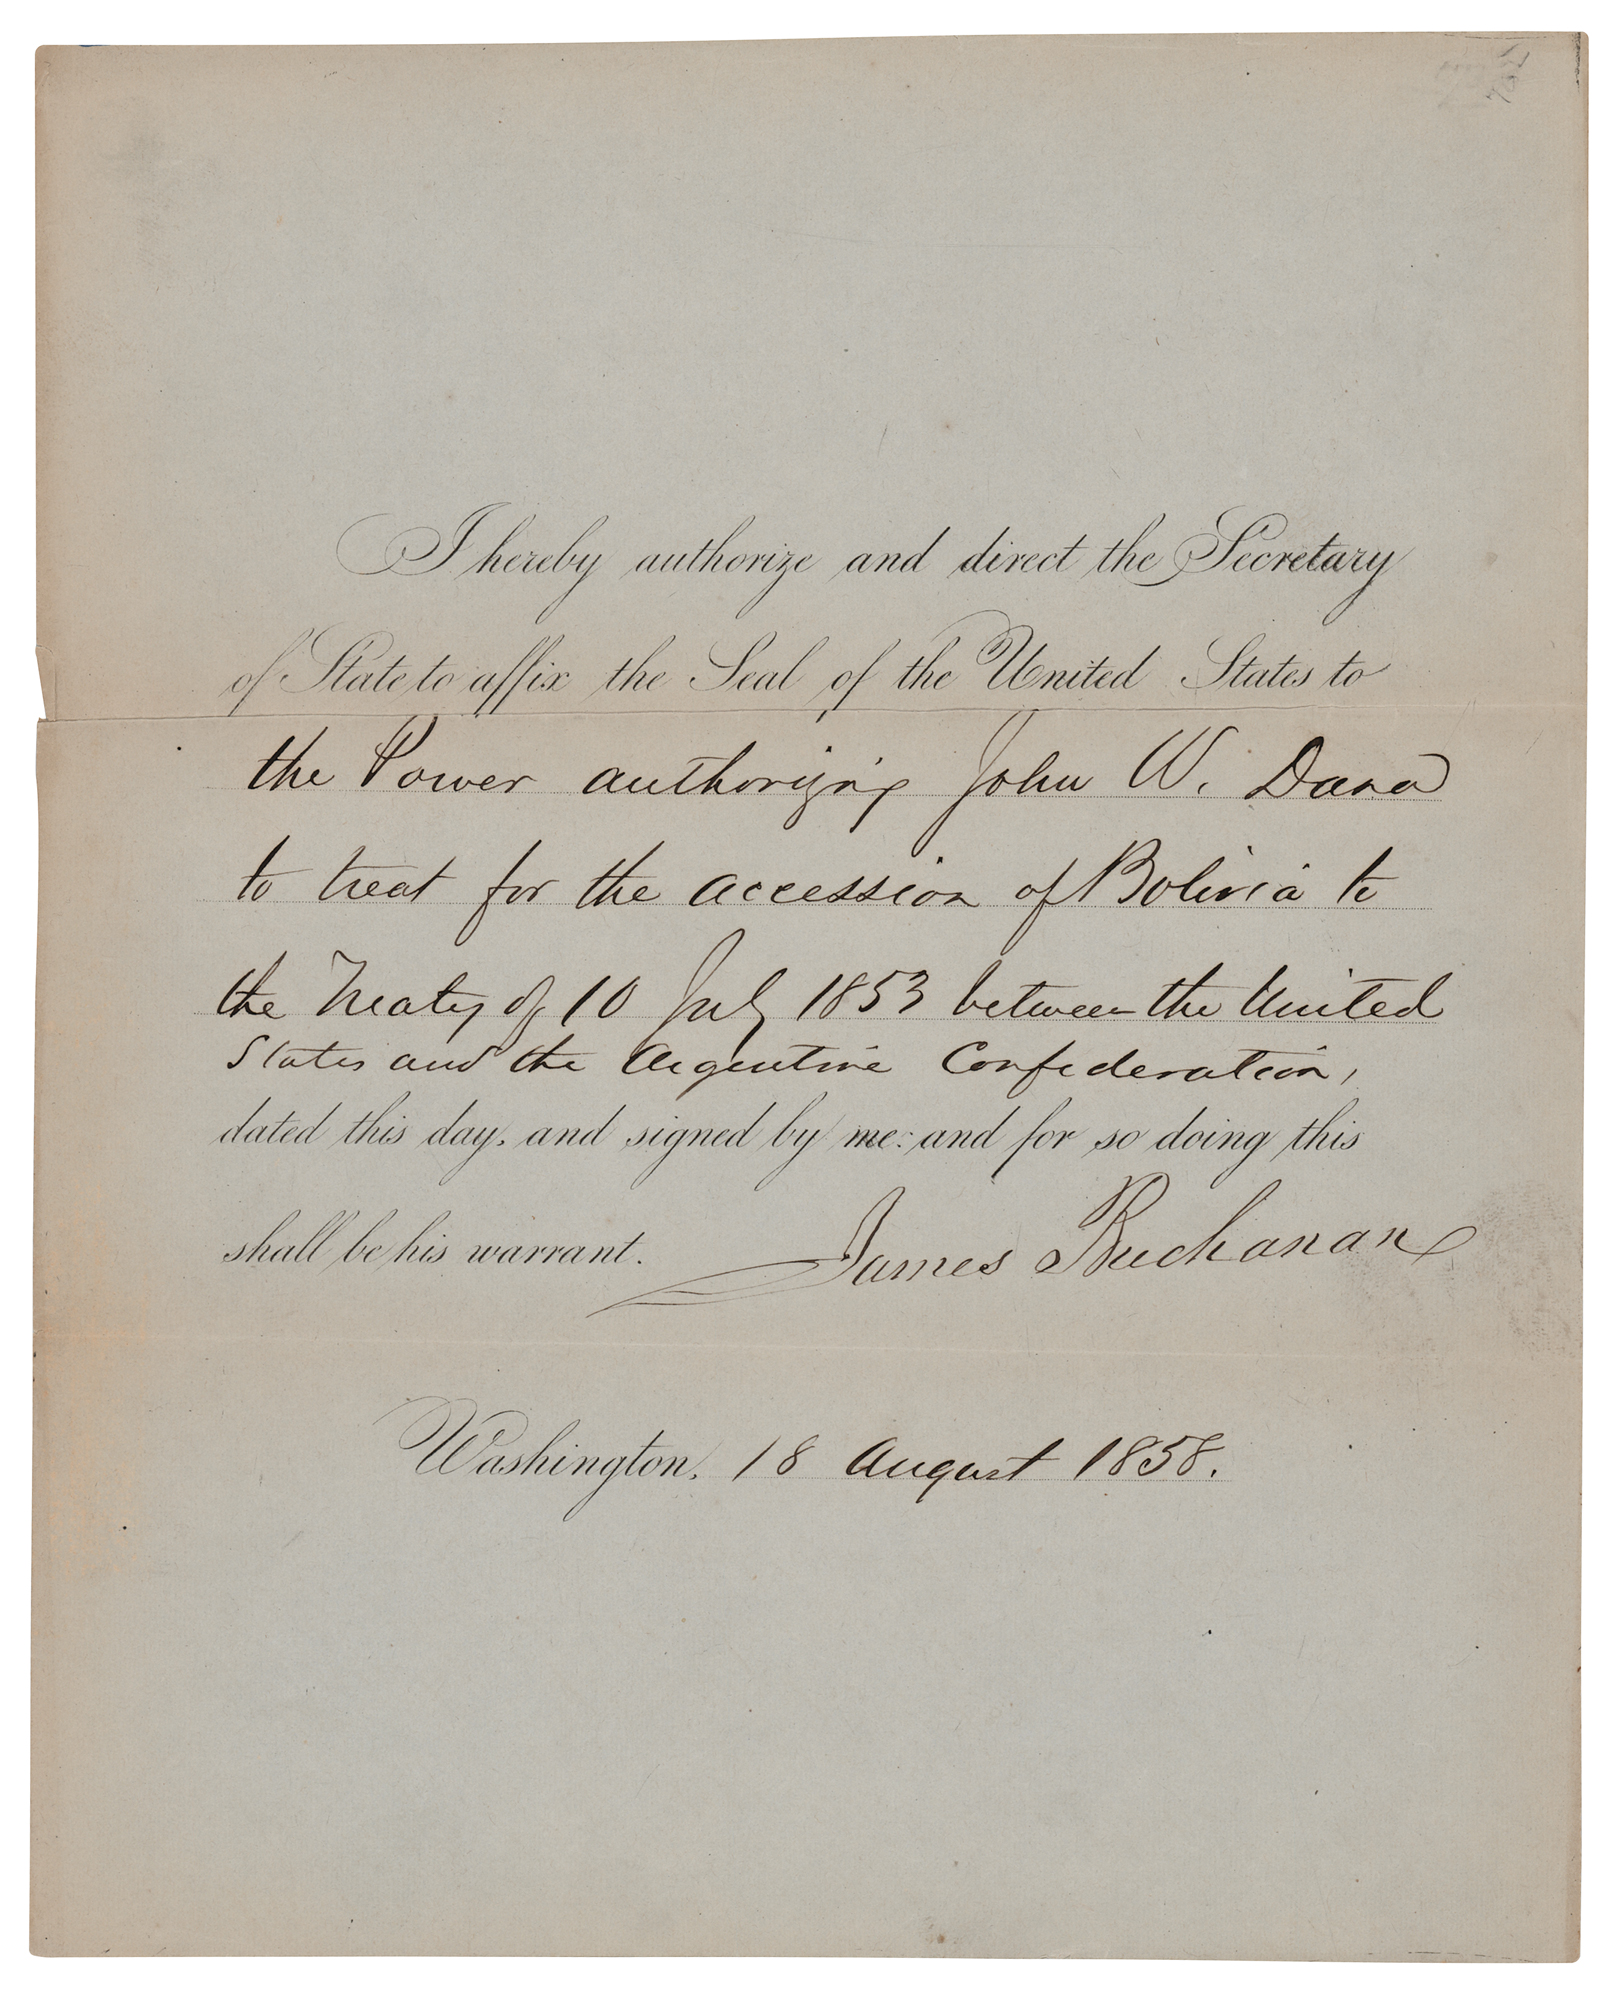 I hereby authorize and direct the Secretary
of State to affix the Seal of the United States to
the Power authorizing John W. Dana
to treat for the accession of Bolivia to
the Treaty of 10 July 1853 between the United
States and the Argentine Confederation,
dated this day, and signed by me: and for so doing this
shall be his warrant.
James Buchanan
Washington, 18 August 1858.